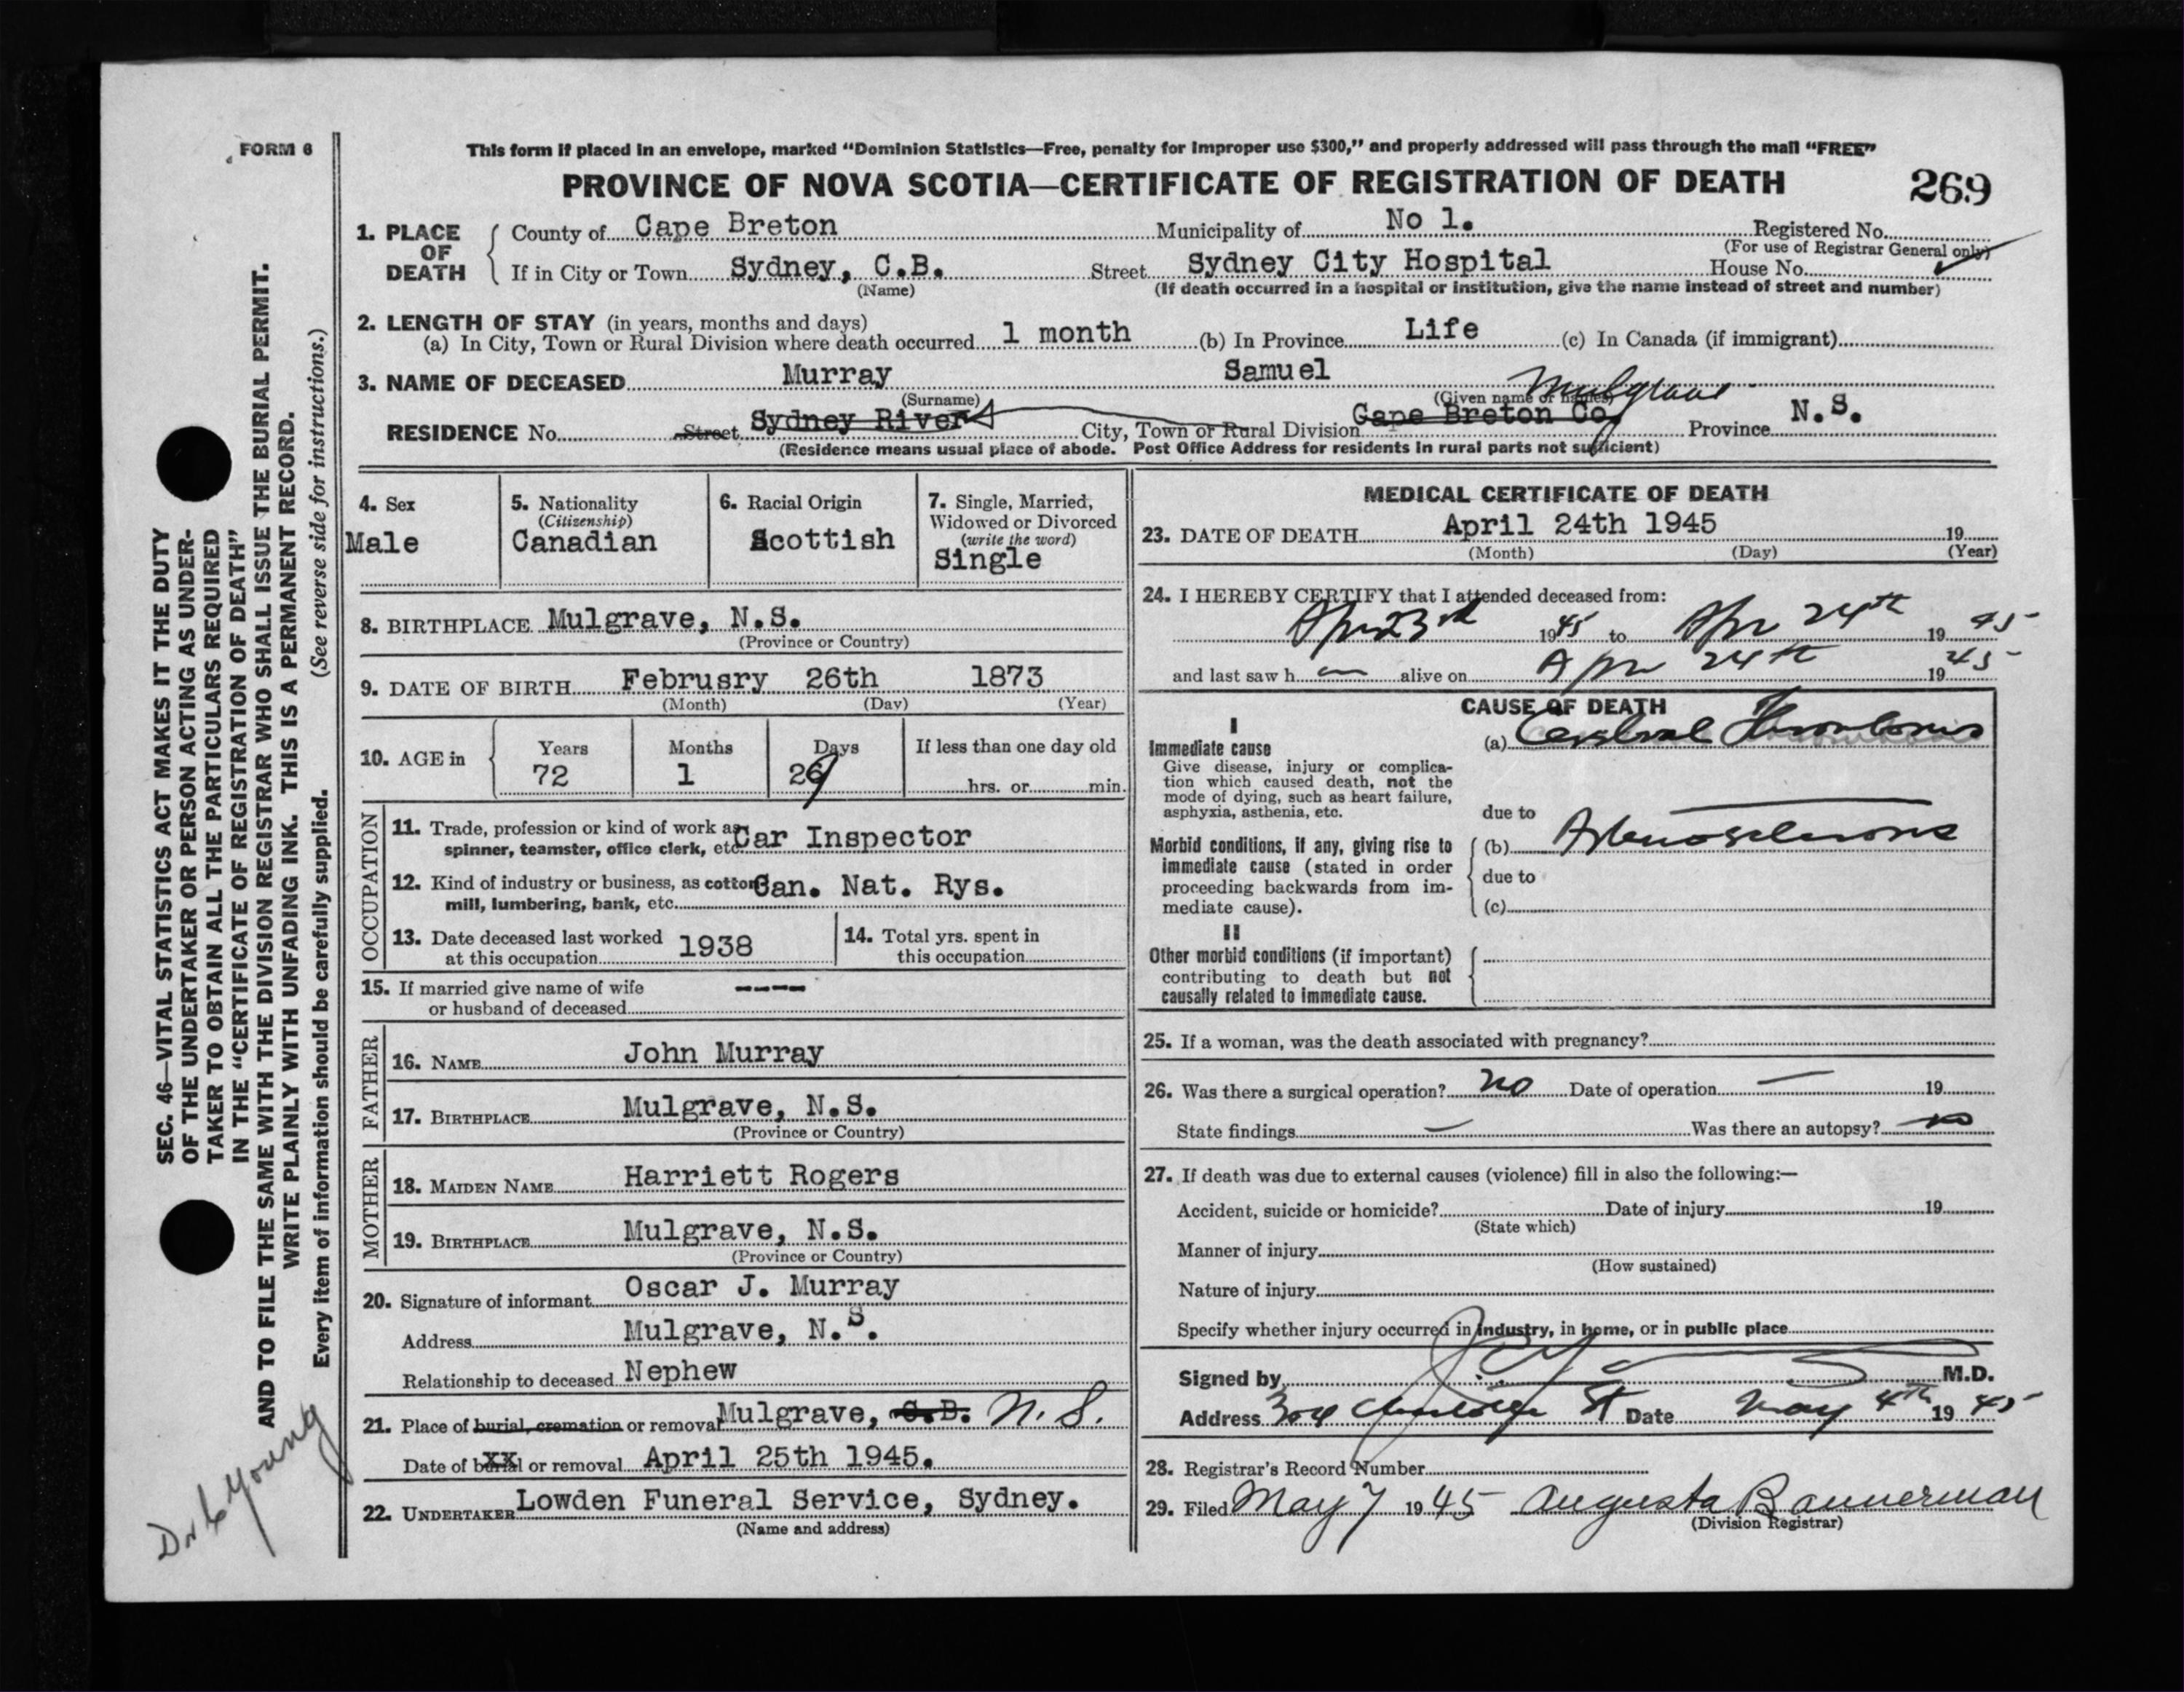 FORM 6
This form if placed in an envelope, marked “Dominion Statistics—Free, penalty for improper use $300,” and properly addressed will pass through the mail “FREE”
PROVINCE OF NOVA SCOTIA—CERTIFICATE OF REGISTRATION OF DEATH
269
1. PLACE OF DEATH
County of Cape Breton Municipality of No 1. Registered No.
(For use of Registrar General only)
If in City or Town Sydney, C.B. Street Sydney City Hospital House No.
(Name) (If death occurred in a hospital or institution, give the name instead of street and number)
2. LENGTH OF STAY (in years, months and days)
(a) In City, Town or Rural Division where death occurred 1 month (b) In Province Life (c) In Canada (if immigrant)
3. NAME OF DECEASED Murray Samuel
(Surname) (Given name or names) Mulgrave
RESIDENCE No. Street Sydney River City, Town or Rural Division Cape Breton Co Province N.S.
(Residence means usual place of abode. Post Office Address for residents in rural parts not sufficient)
4. Sex
Male
5. Nationality
(Citizenship)
Canadian
6. Racial Origin
Scottish
7. Single, Married,
Widowed or Divorced
(write the word)
Single
8. BIRTHPLACE Mulgrave, N.S.
(Province or Country)
9. DATE OF BIRTH Februsry 26th 1873
(Month) (Day) (Year)
10. AGE in
Years Months Days If less than one day old
72 1 hrs. or min.
OCCUPATION
11. Trade, profession or kind of work as
spinner, teamster, office clerk, etc. Car Inspector
12. Kind of industry or business, as cotton
mill, lumbering, bank, etc. Can. Nat. Rys.
13. Date deceased last worked
at this occupation 1938
14. Total yrs. spent in
this occupation
15. If married give name of wife
or husband of deceased ----
FATHER
16. NAME John Murray
17. BIRTHPLACE Mulgrave, N.S.
(Province or Country)
MOTHER
18. MAIDEN NAME Harriett Rogers
19. BIRTHPLACE Mulgrave, N.S.
(Province or Country)
20. Signature of informant Oscar J. Murray
Address Mulgrave, N.S.
Relationship to deceased Nephew
21. Place of burial, cremation or removal Mulgrave, C.B. N.S.
Date of burial or removal April 25th 1945.
22. UNDERTAKER Lowden Funeral Service, Sydney.
(Name and address)
MEDICAL CERTIFICATE OF DEATH
23. DATE OF DEATH April 24th 1945 19
(Month) (Day) (Year)
24. I HEREBY CERTIFY that I attended deceased from:
Apr 23rd 1945 to Apr 24th 1945
and last saw h alive on Apr 24th 1945
CAUSE OF DEATH
I
Immediate cause
Give disease, injury or complica-
tion which caused death, not the
mode of dying, such as heart failure,
asphyxia, asthenia, etc.
(a) Cerebral Thrombosis
due to
Morbid conditions, if any, giving rise to
immediate cause (stated in order
proceeding backwards from im-
mediate cause).
(b) Arteriosclerosis
due to
(c)
II
Other morbid conditions (if important)
contributing to death but not
causally related to immediate cause.
25. If a woman, was the death associated with pregnancy?
26. Was there a surgical operation? no Date of operation — 19
State findings — Was there an autopsy? no
27. If death was due to external causes (violence) fill in also the following:—
Accident, suicide or homicide? Date of injury 19
(State which)
Manner of injury
(How sustained)
Nature of injury
Specify whether injury occurred in industry, in home, or in public place
Signed by M.D.
Address St Date May 4th 1945
28. Registrar's Record Number
29. Filed May 7 1945 Augusta Bannerman
(Division Registrar)
SEC. 46—VITAL STATISTICS ACT MAKES IT THE DUTY
OF THE UNDERTAKER OR PERSON ACTING AS UNDER-
TAKER TO OBTAIN ALL THE PARTICULARS REQUIRED
IN THE “CERTIFICATE OF REGISTRATION OF DEATH”
AND TO FILE THE SAME WITH THE DIVISION REGISTRAR WHO SHALL ISSUE THE BURIAL PERMIT.
WRITE PLAINLY WITH UNFADING INK. THIS IS A PERMANENT RECORD.
Every item of information should be carefully supplied. (See reverse side for instructions.)
Young